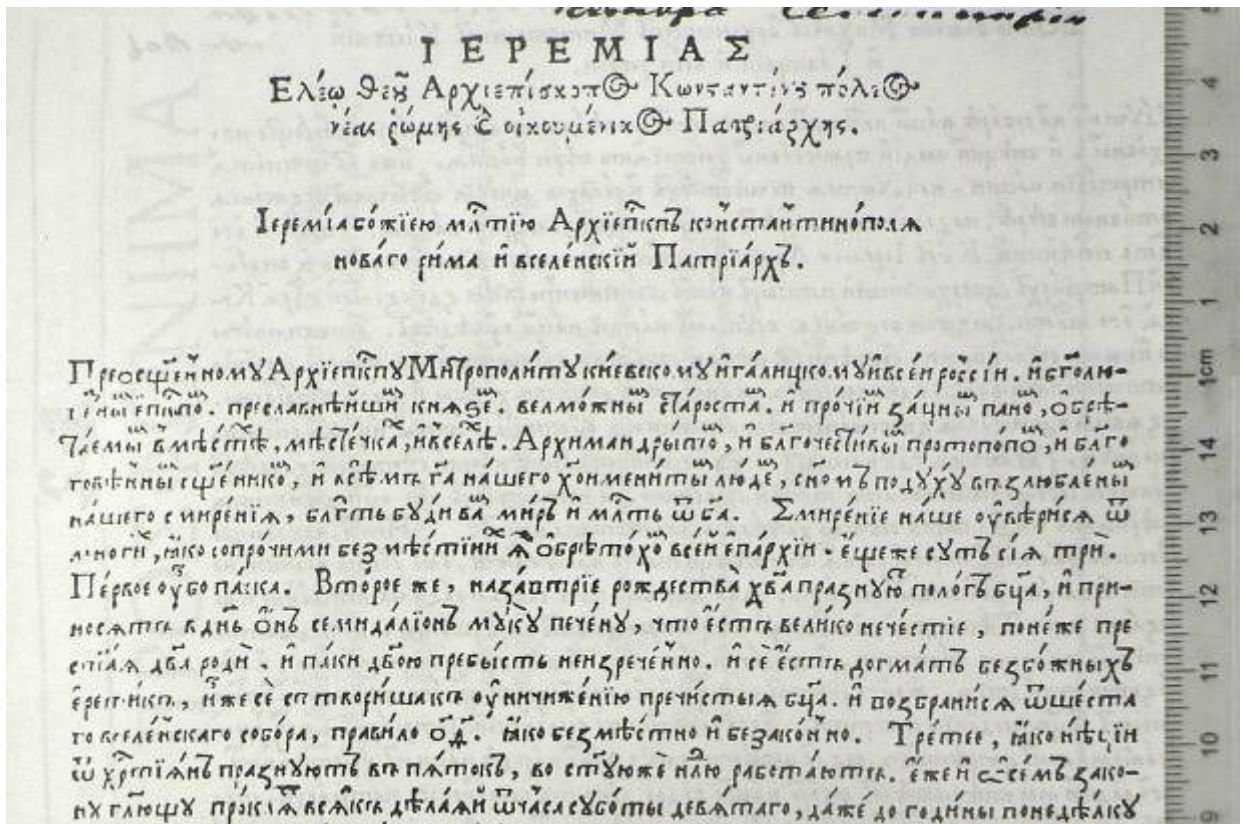 ΙΕΡΕΜΙΑΣ
Ελέω θεȣ͂ Αρχιεπίσκοπος Κωνσταντίνȣ πόλεως
νέας ῥώμης ϗ οἰκουμένικος Πατριάρχης.
Іеремі́а бо́жїею млⷭ҇тїю Архїепⷭ҇кпъ ко́нстантинопо́лѧ
нова́го ри́ма и҆ вселе́нскїй Патрїа́рхъ.
Архїепⷭ҇кпꙋ Митрополи́тꙋ ки́евскомꙋ и҆ га́лицкомꙋ и҆ всеѧ̀ рѡссі́и. и҆ бг҃олю-
преславнѣ́йши кнѧѕе. велмо́жны ста́роста. и҆ про́чїи за́цны пано, ѻ҆брѣ-
та́емы в мѣ́стѣ, мѣсте́чка, и҆ в се́лѣ. Архимандры́тѡ, и҆ бл҃гочести́вы протопо́по, и҆ бл҃го
говѣ́йны сщ҃е́ннико, и҆ всѣ́мъ га на́шего хо҃имени́ты лю́де, сн҃омъ по дꙋ́хꙋ възлю́блены
на́шего смире́нїѧ, бл҃гть бꙋ́ди ва ми́ръ и҆ мл҃ть ѿ ба. Смире́нїе на́ше ᲂу҆вѣ́рисѧ ѿ
мно́ги, ꙗ҆́ко со про́чими без мѣ́стїи ꙗ҆̀ ѻ҆брѣ́тохо всей епа́рхїи. е҆ще́же сꙋ́ть сїѧ̀ трѝ.
Пе́рвое ᲂу҆́бо па́ска. Второе же, наза́втрїе рождества̀ хв҃а пра́знꙋю поло́гъ бц҃а, и҆ при-
но́сѧтъ в дн҃ь ѻ҆́нъ семидалі́онъ мꙋ́кꙋ пече́нꙋ, что є҆́стъ вели́ко нече́стїе, поне́же пре
чⷭ҇таѧ дв҃а родѝ. и҆ па́ки дв҃ою пребы́сть неизрече́нно. и҆ сѐ є҆́стъ догма́тъ безбо́жныхъ
є҆рети́къ, и҆́же сѐ сътвори́ша къ ᲂу҆ничиже́нїю пречи́стыѧ бц҃а. и҆ возбрани́сѧ ѿ ше́ста
го вселе́нскаго собо́ра, пра́вило ѻ҆́д. ꙗ҆́ко безмѣ́стно и҆ безако́нно. Тре́тее, ꙗ҆́ко нѣ́цїи
ѿ хрⷭ҇тїѧ́нъ пра́знꙋютъ въ пѧто́къ, во ст҃ꙋюже нл҃ю рабо́таютъ. є҆́же и҆ съ все́мъ зако́-
нꙋ гл҃ющꙋ про́клѧ всѧ́къ дѣ́лаѧй ѿ часа̀ сꙋбо́ты девѧ́таго, да́же до годи́ны понедѣ́лкꙋ
4
3
2
1
1cm
14
13
12
11
10
9